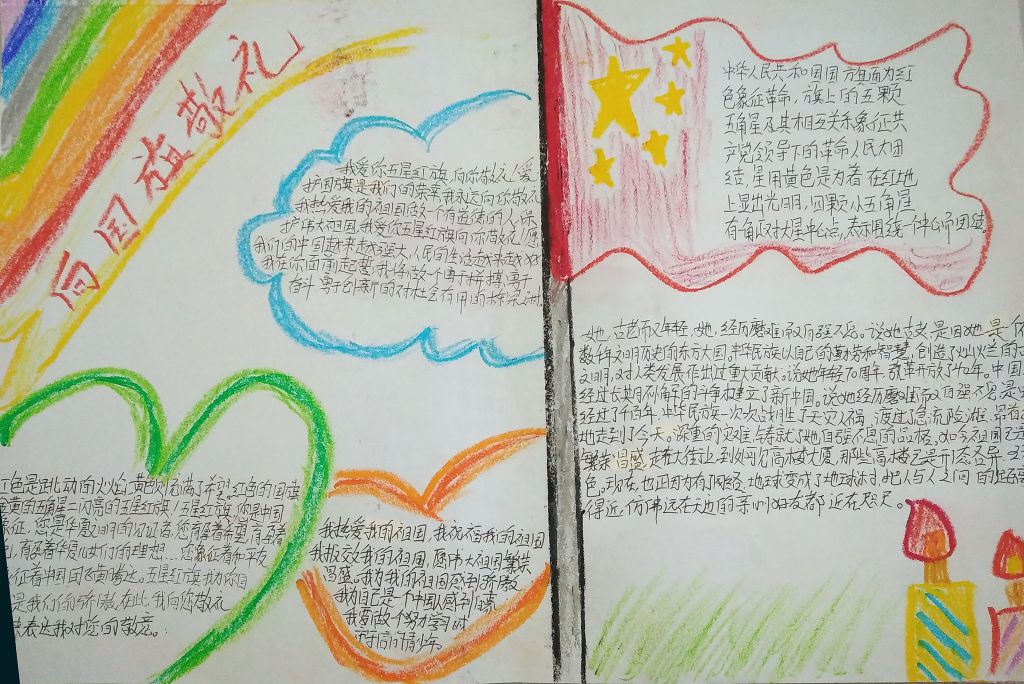 向国旗敬礼
我爱你五星红旗,向你敬礼!爱
护国旗是我们的荣幸,我永远向你敬礼
我热爱我的祖国做一个有道德的人,保
护伟大祖国,我爱你五星红旗向你敬礼!愿
我们的中国越来越强大,人民的生活越来越好
我在你面前起誓,我将做一个勇于拼搏,勇于
奋斗勇于创新的对社会有用的
红色是跳动的火焰,黄色充满了希望,红色的国旗
金黄的五角星二闪亮的五星红旗!五星红旗,你是中国
象征,您是华夏文明的见证者,您有着希望,有着
有着华夏儿女们的理想…您象征着和平友
征着中国的飞黄腾达,五星红旗我为你自
是我们的骄傲,在此,我向您敬礼
来表达我对您的敬意。
我热爱我的祖国,我祝福我的祖国
我报效我的祖国,愿伟大祖国繁荣
昌盛。我为我的祖国感到骄傲
我为自己是一个中国人感到自豪
我要做个努力学习对
的青少年。
中华人民共和国国旗面为红
色象征革命,旗上的五颗
五角星及其相互关系象征共
产党领导下的革命人民大团
结,星用黄色是为着在红地
上显出光明,四颗小五角星
有一角正对大星中心点,表示围绕一个中心而团结
她,古老而又年轻,她,经历磨难而自强不息。说她古老,是因她是
数千年文明历史的东方大国,中华民族以自己的勤劳和智慧,创造了灿烂的
文明,对人类发展作出过重大贡献。说她年轻70周年,改革开放了40年。中国
经过长期不懈的斗争建立了新中国。说她经历磨难而自强不息是
经过了千百年,中华民族一次次战胜了天灾人祸,渡过急流险滩,昂首
地走到了今天。深重的灾难铸就了她自强不息的品格。如今祖国已
繁荣昌盛,走在大街上,到处可见高楼大厦,那些高楼已是形态各异、五
色。现在,也正因为有了网络,地球变成了地球村,把人与人之间的距离
得近,仿佛远在天边的亲朋好友都近在咫尺。